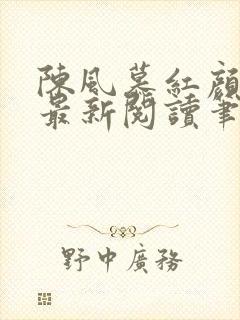 陳風慕紅顏
最新閱讀筆
野中廣務